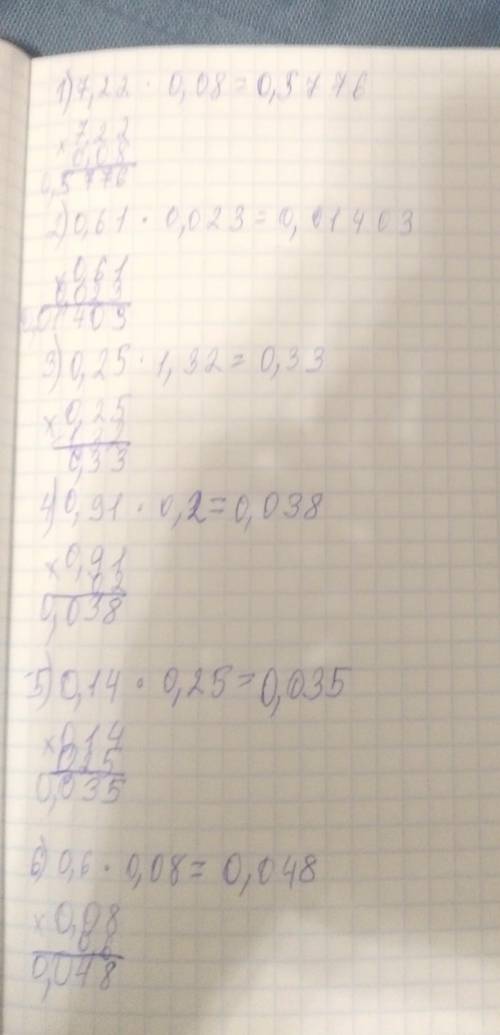 1) 7,22 · 0,08 = 0,5776
× 7,22
0,08
0,5776
2) 0,61 · 0,023 = 0,01403
× 0,61
0,023
0,01403
3) 0,25 · 1,32 = 0,33
× 0,25
0,33
4) 0,91 · 0,2 = 0,038
× 0,91
0,2
0,038
5) 0,14 · 0,25 = 0,035
× 0,14
0,25
0,035
6) 0,6 · 0,08 = 0,048
× 0,08
0,048